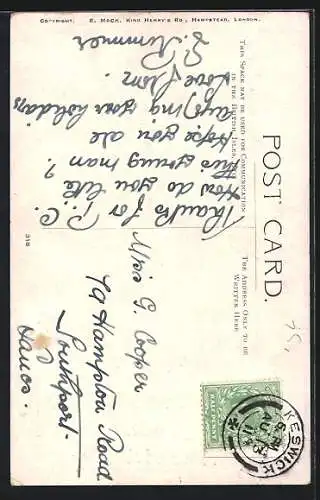 Copyright. E. Mock, King Henry's Rd, Hampstead, London.
POST CARD.
This Space may be used for Communication
in the British Isles
The Address Only to be
Written Here
Thanks for P.C.
How do you like
this young man?
Hope you are
enjoying your holidays
Love from
S. Rimmer
Miss G. Cooper
Hampton Road
Southport.
Lancs.
HALF PENNY
KESWICK
AU 10
11